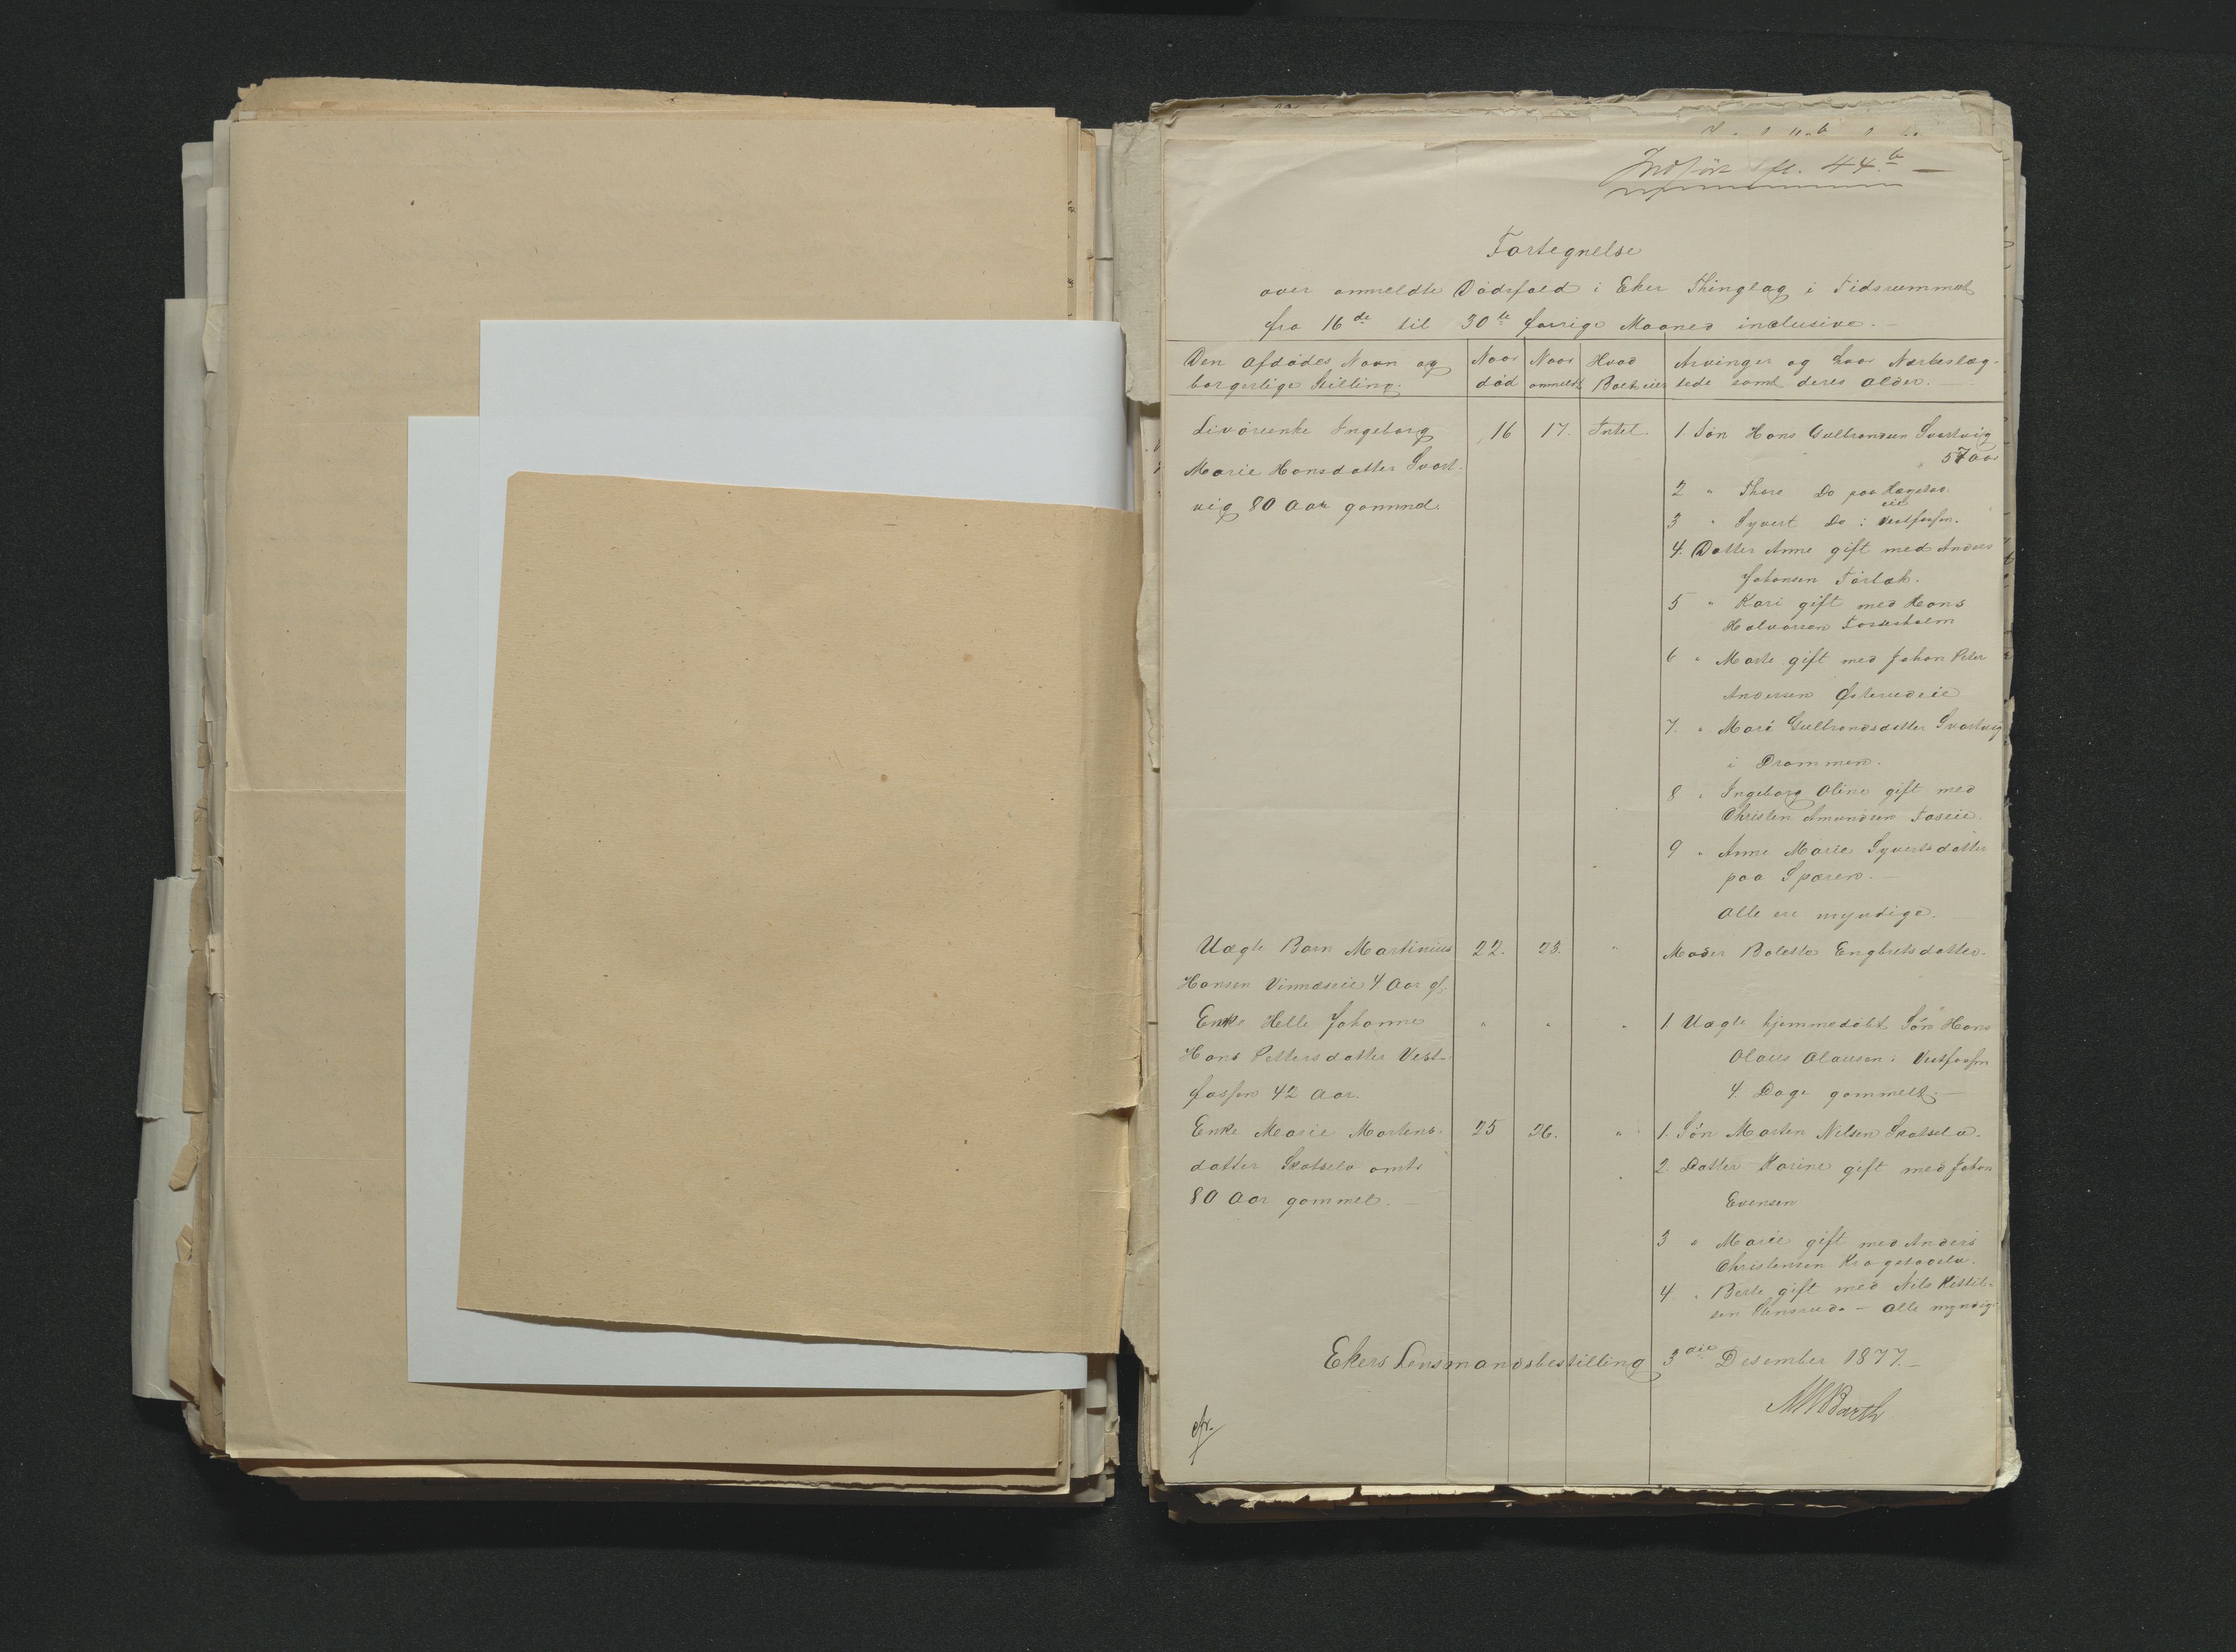 Indført fl. 44.b —
Fortegnelse
over anmeldte Dødsfald i Eker Thinglag i Tidsrummet
fra 16de til 30te forrige Maaned inclusive. —
Den Afdødes Navn og borgerlige Stilling. | Naar død | Naar anmeldt | Hvad Boet eier | Arvinger og hvor Nærbeslæg-
tede samt deres Alder. —
Livøreenke Ingeborg 16 17. Intet. 1 Søn Hans Gulbrandsen Svartvig
57 Aar
Marie Hansdatter Svart-
2 " Thore Do paa
vig 80 Aar gammel.
3 " Syvert Do i Vestfossen.
4. Datter Anne gift med Anders
Johansen
5 " Kari gift med Hans
Halvorsen
6 " Marte gift med Johan Peter
Andersen
7. " Mari Gulbrandsdatter Svartvig
i Drammen.
8 " Ingeborg Oline gift med
Christen Amundsen
9 " Anne Marie Syvertsdatter
paa Sparen. —
Alle ere myndige. —
Uægte Barn Martinius 22. 23. " Moder Bolette Engbretsdatter.
Hansen Vinnæseie 4 Aar gl.
Enke Helle Johanne " " " 1 Uægte hjemmedøbt Søn Hans
Hans Pettersdatter Vest-
Olaus Olausen i Vestfossen
fossen 42 Aar.
4 Dage gammelt. —
Enke Marie Martens- 25 26. " 1. Søn Morten Nilsen Skotselv.
datter Skotselv omtr.
2. Datter Karine gift med Johan
80 Aar gammel. —
Evensen
3 " Marie gift med Anders
Christensen
4 " Berte gift med Nils Kittil-
sen — Alle myndige
Ekers Lensmandsbestilling 3die Desember 1877. —
MBarth